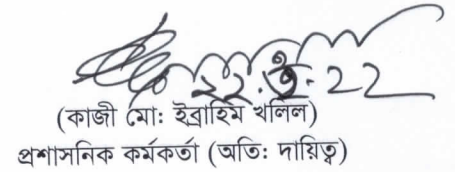 (কাজী মো: ইব্রাহিম খলিল)
প্রশাসনিক কর্মকর্তা (অতি: দায়িত্ব)